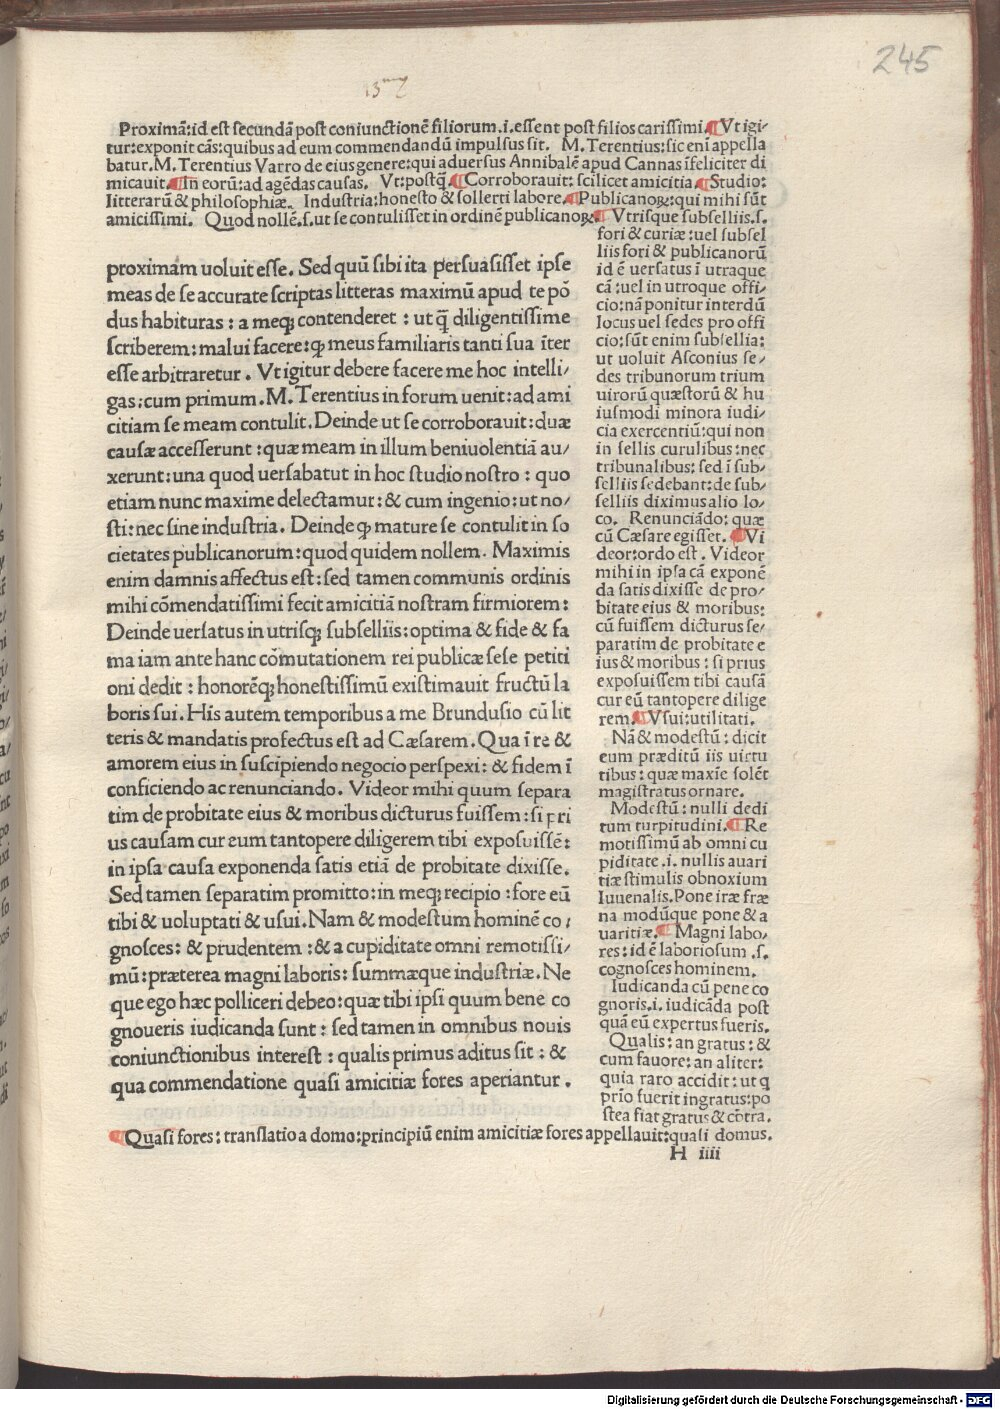 245
Proximā:id est secundā post coniunctionē filiorum.i.essent post filios carissimi.¶Vt igi/
tur:exponit cās:quibus ad eum commendandū impulsus sit. M.Terentius:sic enī appella
batur.M.Terentius Varro de eius genere:qui aduersus Annibalē apud Cannas īfeliciter di
micauit.¶In eorū:ad agēdas causas. Vt:postq̄.¶Corroborauit:scilicet amicitia.¶Studio:
litterarū & philosophiæ. Industria:honesto & sollerti labore.¶Publicanoꝝ:qui mihi sūt
amicissimi. Quod nollē.s.ut se contulisset in ordinē publicanoꝝ.¶Vtrisque subselliis.s.
fori & curiæ:uel subsel
liis fori & publicanorū
id ē uersatus ī utraque
cā:uel in utroque offi/
cio:nā ponitur interdū
locus uel sedes pro offi
cio:sūt enim subsellia:
ut uoluit Asconius se/
des tribunorum trium
uirorū quæstorū & hu
iusmodi minora iudi/
cia exercentiū:qui non
in sellis curulibus:nec
tribunalibus:sed ī sub/
selliis sedebant:de sub/
selliis diximus alio lo/
co. Renunciādo:quæ
cū Cæsare egisset.¶Vi
deor:ordo est. Videor
mihi in ipsa cā exponē
da satis dixisse de pro/
bitate eius & moribus:
cū fuissem dicturus se/
paratim de probitate e
ius & moribus:si prius
exposuissem tibi causā
cur eū tantopere dilige
rem.¶Vsui:utilitati.
Nā & modestū:dicit
eum præditū iis uirtu
tibus:quæ maxīe solēt
magistratus ornare.
Modestū:nulli dedi
tum turpitudini.¶Re
motissimū ab omni cu
piditate.i.nullis auari
tiæ stimulis obnoxium
Iuuenalis.Pone iræ fræ
na modūque pone & a
uaritiæ.¶Magni labo/
res:id ē laboriosum.s.
cognosces hominem.
Iudicanda cū pene co
gnoris.i.iudicāda post
quā eū expertus fueris.
Qualis:an gratus:&
cum fauore:an aliter:
quia raro accidit:ut q
prīo fuerit ingratus:po
stea fiat gratus & cōtra.
proximam uoluit esse. Sed quū sibi ita persuasisset ipse
meas de se accurate scriptas litteras maximū apud te pō
dus habituras:a meqꝫ contenderet:ut q̄ diligentissime
scriberem:malui facere:qꝫ meus familiaris tanti sua īter
esse arbitraretur. Vt igitur debere facere me hoc intelli/
gas:cum primum.M.Terentius in forum uenit:ad ami
citiam se meam contulit.Deinde ut se corroborauit:duæ
causæ accesserunt:quæ meam in illum beniuolentiā au/
xerunt:una quod uersabatur in hoc studio nostro:quo
etiam nunc maxime delectamur:& cum ingenio:ut no/
sti:nec sine industria. Deinde qꝫ mature se contulit in so
cietates publicanorum:quod quidem nollem. Maximis
enim damnis affectus est:sed tamen communis ordinis
mihi cōmendatissimi fecit amicitiā nostram firmiorem:
Deinde uersatus in utrisqꝫ subselliis:optima & fide & fa
ma iam ante hanc cōmutationem rei publicæ sese petiti
oni dedit:honorēqꝫ honestissimū existimauit fructū la
boris sui. His autem temporibus a me Brundusio cū lit
teris & mandatis profectus est ad Cæsarem. Qua ī re &
amorem eius in suscipiendo negocio perspexi:& fidem ī
conficiendo ac renunciando. Videor mihi quum separa
tim de probitate eius & moribus dicturus fuissem:si pri
us causam cur eum tantopere diligerem tibi exposuissē:
in ipsa causa exponenda satis etiā de probitate dixisse.
Sed tamen separatim promitto:in meqꝫ recipio:fore eū
tibi & uoluptati & usui.Nam & modestum hominē co/
gnosces:& prudentem:& a cupiditate omni remotissi/
mū:præterea magni laboris:summæque industriæ.Ne
que ego hæc polliceri debeo:quæ tibi ipsi quum bene co
gnoueris iudicanda sunt:sed tamen in omnibus nouis
coniunctionibus interest:qualis primus aditus sit:&
qua commendatione quasi amicitiæ fores aperiantur.
¶Quasi fores:translatio a domo:principiū enim amicitiæ fores appellauit:quasi domus.
H iiii
Digitalisierung gefördert durch die Deutsche Forschungsgemeinschaft - DFG